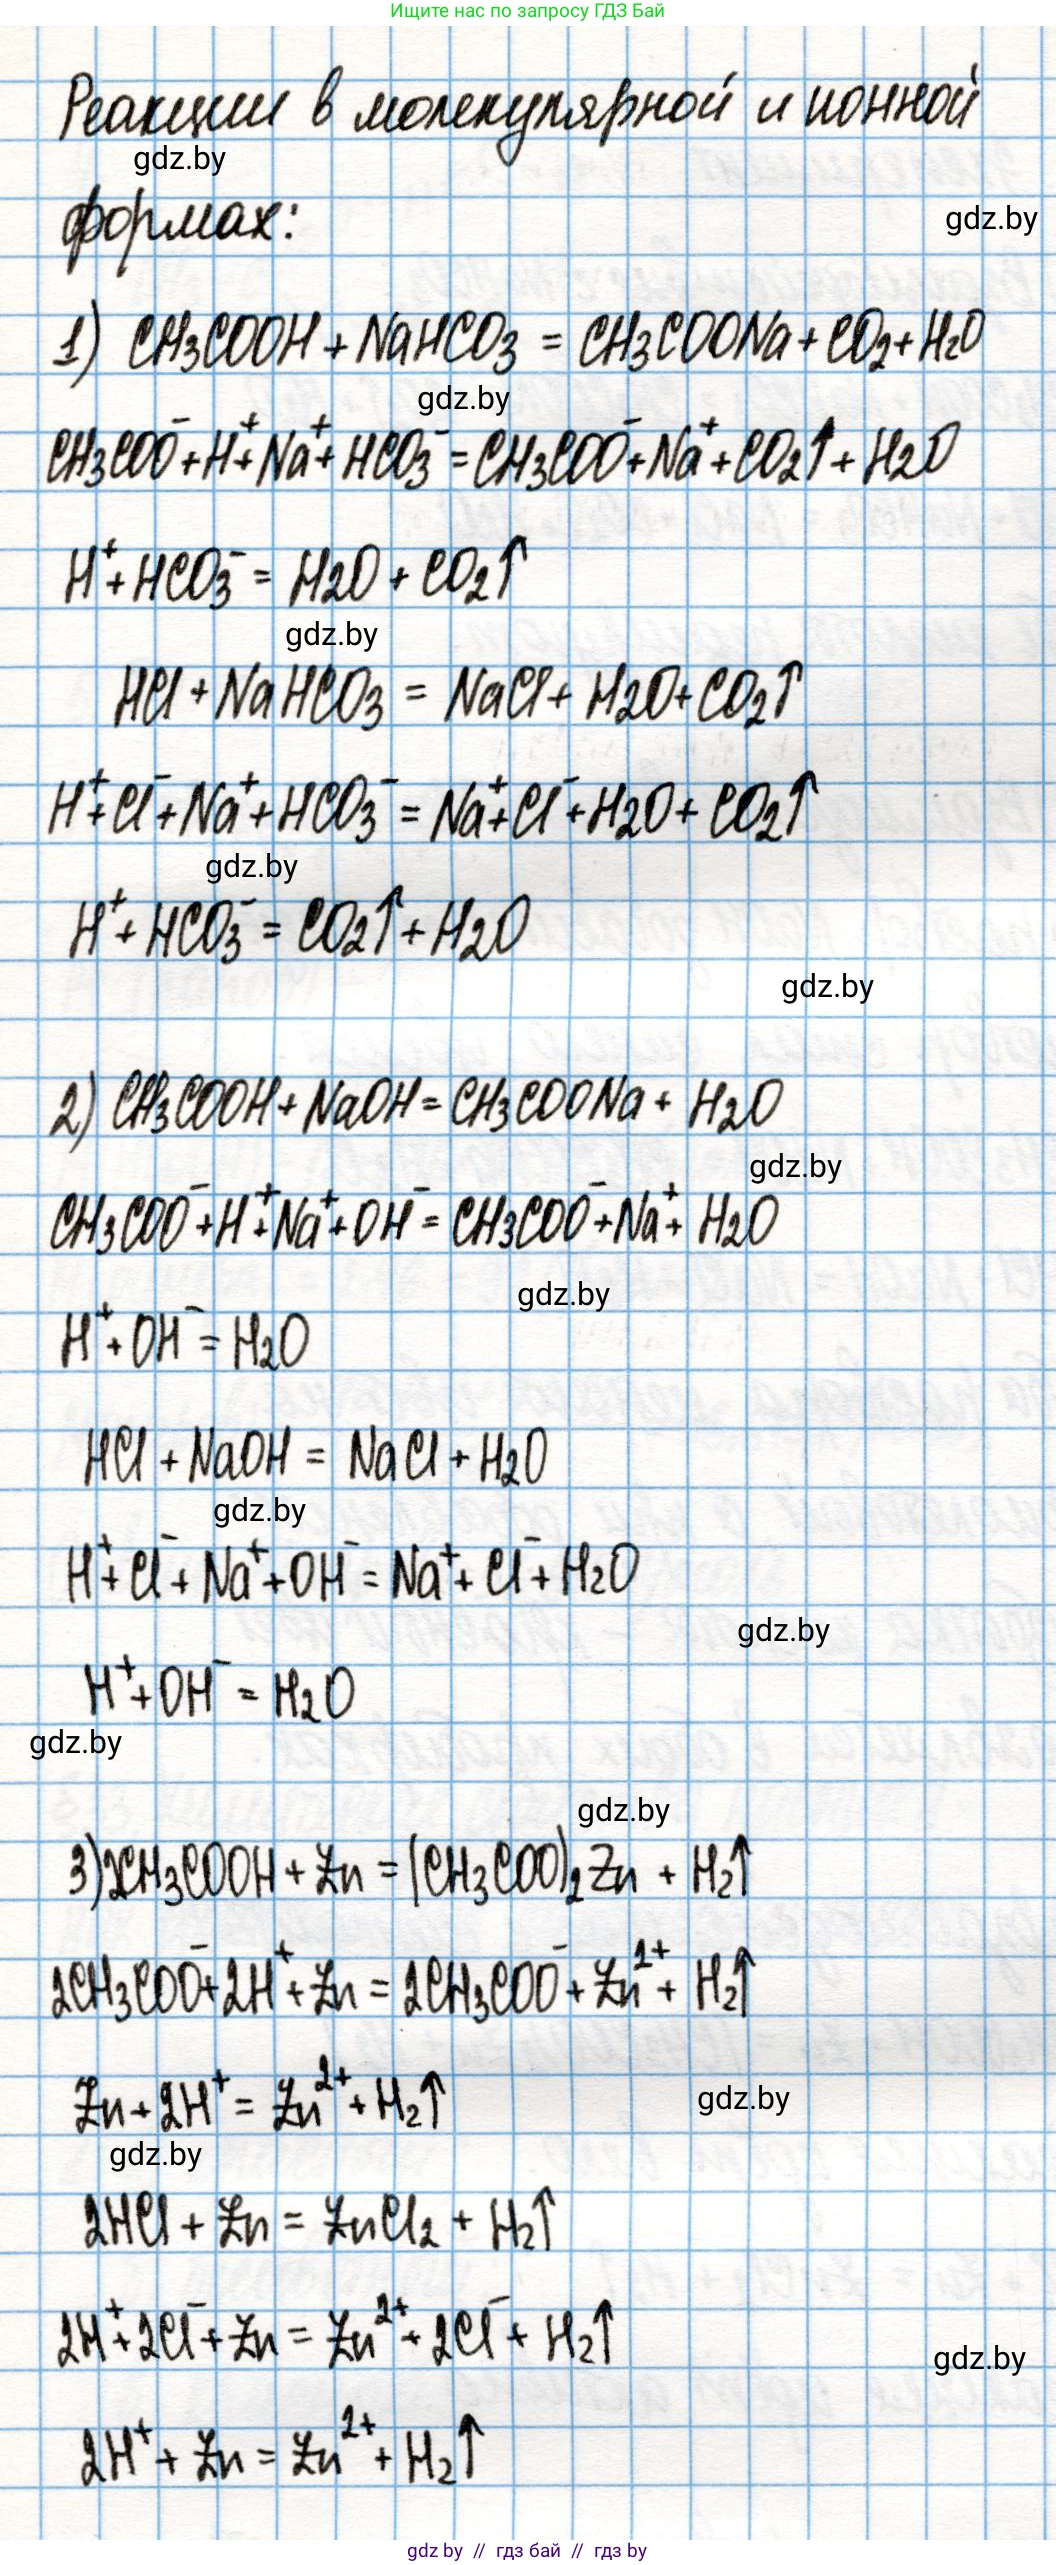 Ищите нас по запросу ГДЗ Бай
Реакции в молекулярной и ионной
gdz.by
формах:
gdz.by
1) CH₃COOH + NaHCO₃ = CH₃COONa + CO₂ + H₂O
gdz.by
CH₃COO⁻ + H⁺ + Na⁺ + HCO₃⁻ = CH₃COO⁻ + Na⁺ + CO₂↑ + H₂O
H⁺ + HCO₃⁻ = H₂O + CO₂↑
gdz.by
HCl + NaHCO₃ = NaCl + H₂O + CO₂↑
H⁺ + Cl⁻ + Na⁺ + HCO₃⁻ = Na⁺ + Cl⁻ + H₂O + CO₂↑
gdz.by
H⁺ + HCO₃⁻ = CO₂↑ + H₂O
gdz.by
2) CH₃COOH + NaOH = CH₃COONa + H₂O
gdz.by
CH₃COO⁻ + H⁺ + Na⁺ + OH⁻ = CH₃COO⁻ + Na⁺ + H₂O
gdz.by
H⁺ + OH⁻ = H₂O
HCl + NaOH = NaCl + H₂O
gdz.by
H⁺ + Cl⁻ + Na⁺ + OH⁻ = Na⁺ + Cl⁻ + H₂O
gdz.by
H⁺ + OH⁻ = H₂O
gdz.by
gdz.by
3) 2CH₃COOH + Zn = (CH₃COO)₂Zn + H₂↑
2CH₃COO⁻ + 2H⁺ + Zn = 2CH₃COO⁻ + Zn²⁺ + H₂↑
Zn + 2H⁺ = Zn²⁺ + H₂↑
gdz.by
gdz.by
2HCl + Zn = ZnCl₂ + H₂↑
2H⁺ + 2Cl⁻ + Zn = Zn²⁺ + 2Cl⁻ + H₂↑
gdz.by
2H⁺ + Zn = Zn²⁺ + H₂↑
gdz by // гдз бай // гдз by